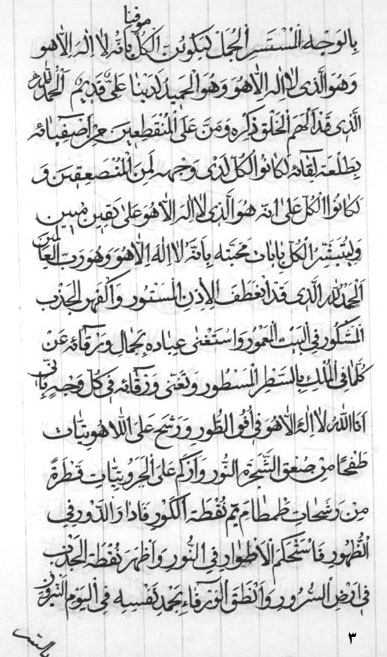 موقنا
بالوجه المستسر الجمل كيكونن الكل بانه لا اله الا هو
وهو الذی لا اله الا هو وهو الحمید لدینا علی قدیم الحمد لله
الذی قد الهم الخلق ذکره ومن علی المنقطعین من اصفیائه
بطلعة لقائه لکانوا لکل لدی وجهه لمن المنصعقین و
لکانوا الکل علی انه هو الذی لا اله الا هو علی یقین مبین
ولیتبتن الکل بایات محبته بانه لا اله الا هو وهو رب العالمین
الحمد لله الذی قد انعطف الاذن المستور واکفهر الجذب
المشکور فی البیت المعمور واستغنی عباده بجمال ورقائه عن
کلما فی الملک بالسطر المسطور وتغنی ورقائه فی کل وجه بانی
انا الله لا اله الا هو فی افق الطور ورشح علی اللاهوتیات
طفحا من صعق الشجرة النور واکرم علی الجبروتیات قطرة
من رشحات طمطام یم نقطة الکور فادار الدور فی
الظهور فاستحکم الاطوار فی النور واظهر نقطة الجذب
فی ارض السرور وانطق الورقاء بحمد نفسه فی الیوم النیروز
٣